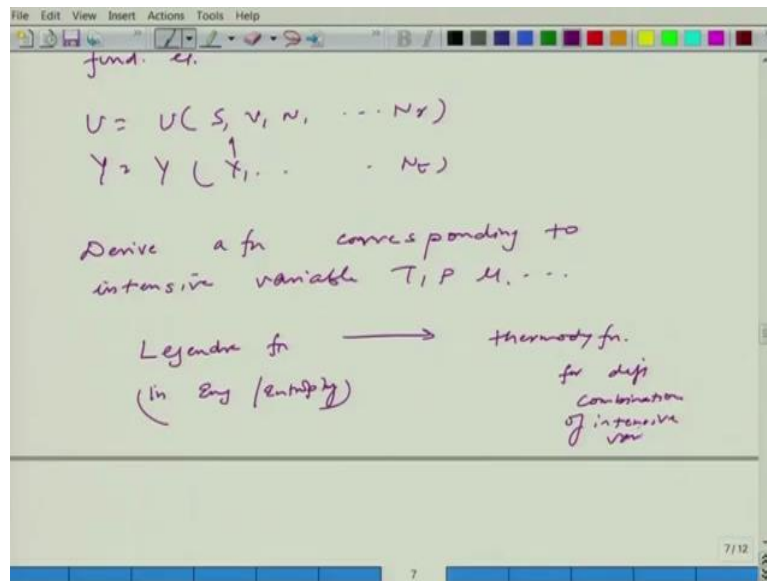 File Edit View Insert Actions Tools Help
fund. eq.
U = U( S, V, N, ... Nr)
Y = Y ( X1, . . . Nr)
Derive a fn corresponding to
intensive variable T, P μ. ...
Legendre fn ⟶ thermody fn.
(in Eng / Entropy) for diff
combination
of intensive
var
7/12
7